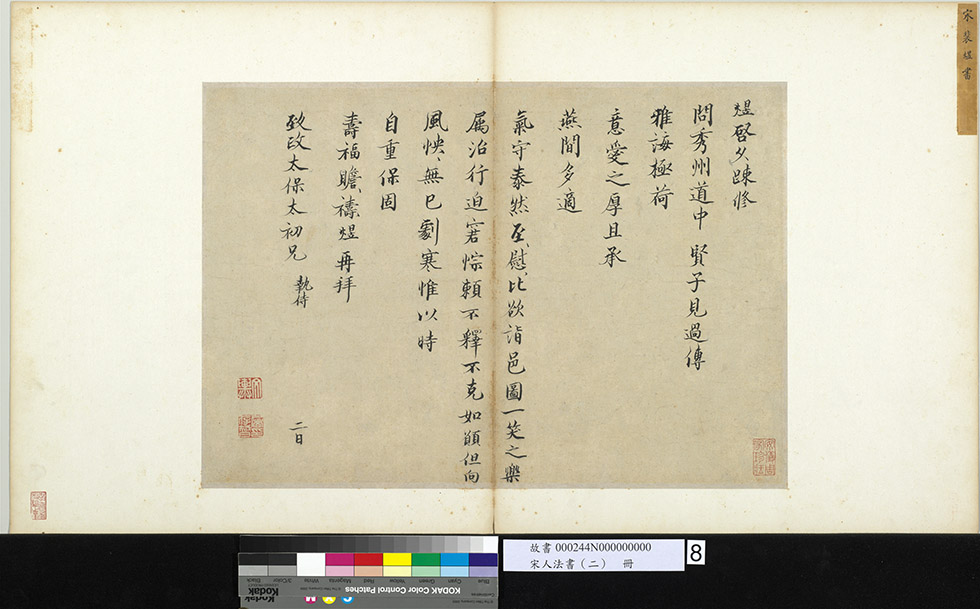 宋裴煜書
煜啓久踈修
問秀州道中 賢子見過傳
雅誨極荷
意愛之厚且承
燕閒多適
氣守泰然至慰比欲詣邑圖一笑之樂
属治行迫窘悰賴不釋不克如願但向
風怏怏無已劇寒惟以時
自重保固
壽福瞻禱煜再拜
致政太保太初兄 執侍
二日
故書 000244N000000000
宋人法書（二） 冊
8
KODAK Color Control Patches
Blue
Cyan
Green
Yellow
Red
Magenta
White
3/Color
Black
Kodak